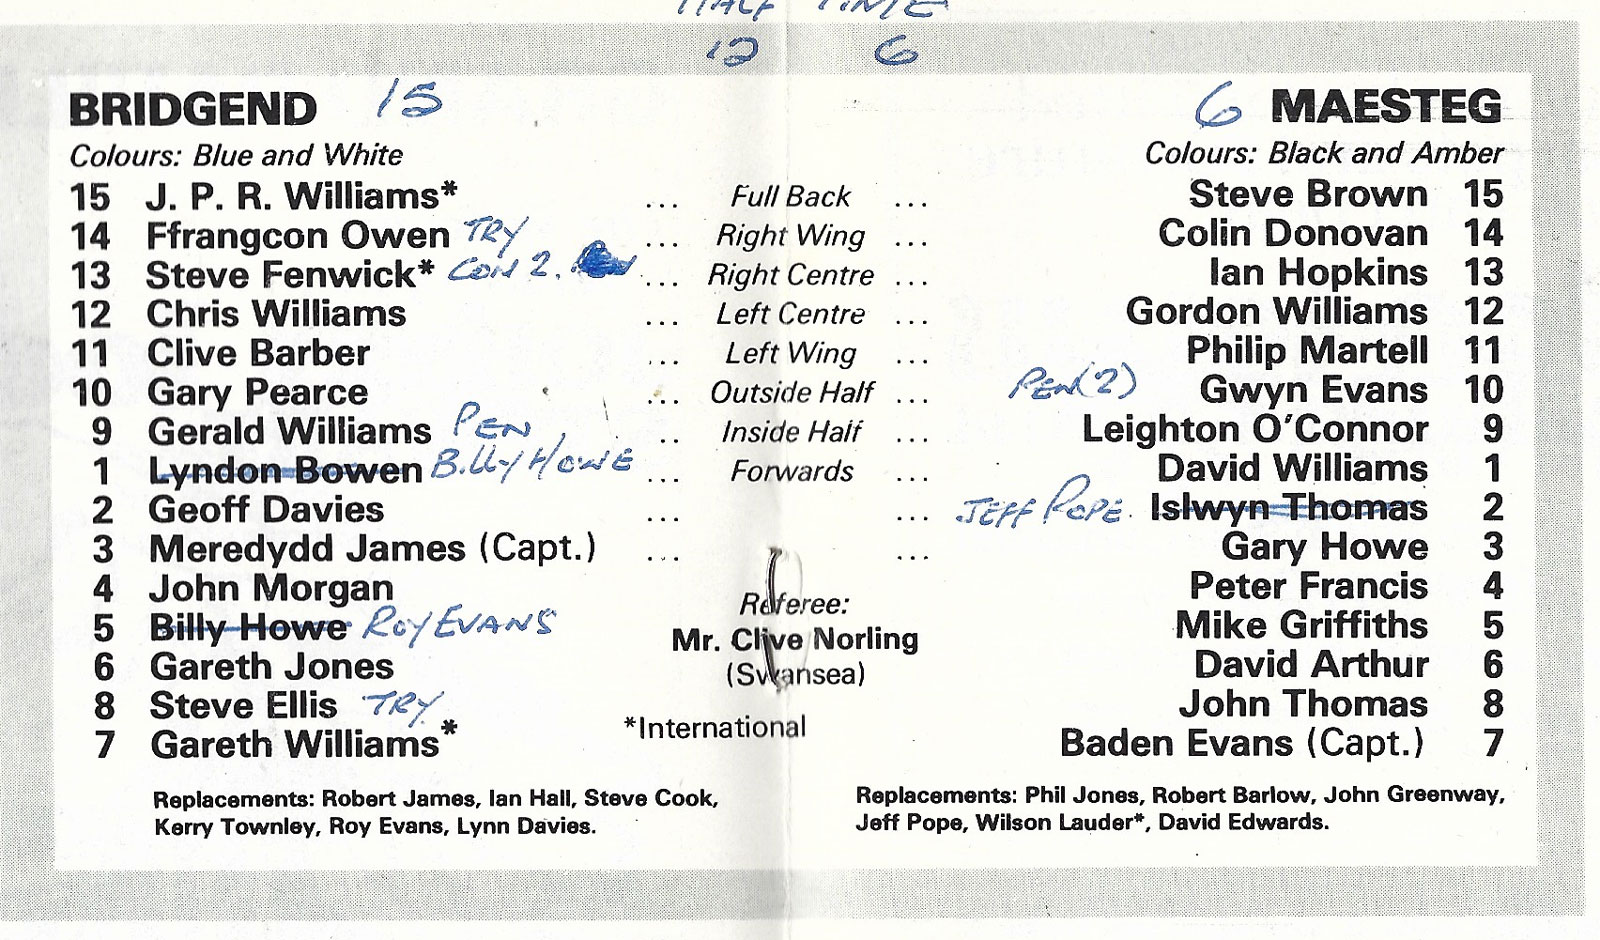 HALF TIME
12 6
BRIDGEND 15 6 MAESTEG
Colours: Blue and White Colours: Black and Amber
15 J. P. R. Williams* ... Full Back ... Steve Brown 15
14 Ffrangcon Owen TRY ... Right Wing ... Colin Donovan 14
13 Steve Fenwick* CON 2. ... Right Centre ... Ian Hopkins 13
12 Chris Williams ... Left Centre ... Gordon Williams 12
11 Clive Barber ... Left Wing ... Philip Martell 11
10 Gary Pearce ... Outside Half ... PEN(2) Gwyn Evans 10
9 Gerald Williams PEN .. Inside Half ... Leighton O'Connor 9
1 Lyndon Bowen Billy HOWE ... Forwards ... David Williams 1
2 Geoff Davies ... ... JEFF POPE. Islwyn Thomas 2
3 Meredydd James (Capt.) ... ... Gary Howe 3
4 John Morgan Referee: Peter Francis 4
5 Billy Howe ROY EVANS Mr. Clive Norling Mike Griffiths 5
6 Gareth Jones (Swansea) David Arthur 6
8 Steve Ellis TRY John Thomas 8
7 Gareth Williams* *International Baden Evans (Capt.) 7
Replacements: Robert James, Ian Hall, Steve Cook,
Kerry Townley, Roy Evans, Lynn Davies.
Replacements: Phil Jones, Robert Barlow, John Greenway,
Jeff Pope, Wilson Lauder*, David Edwards.